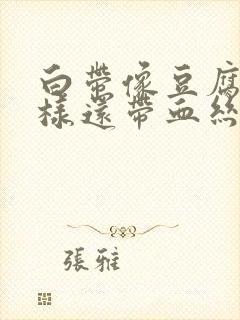 白帶像豆腐
樣還帶血絲
張雅